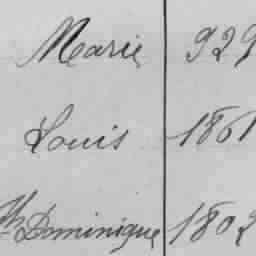 Marie 929
Louis 1861
Dominique 1802